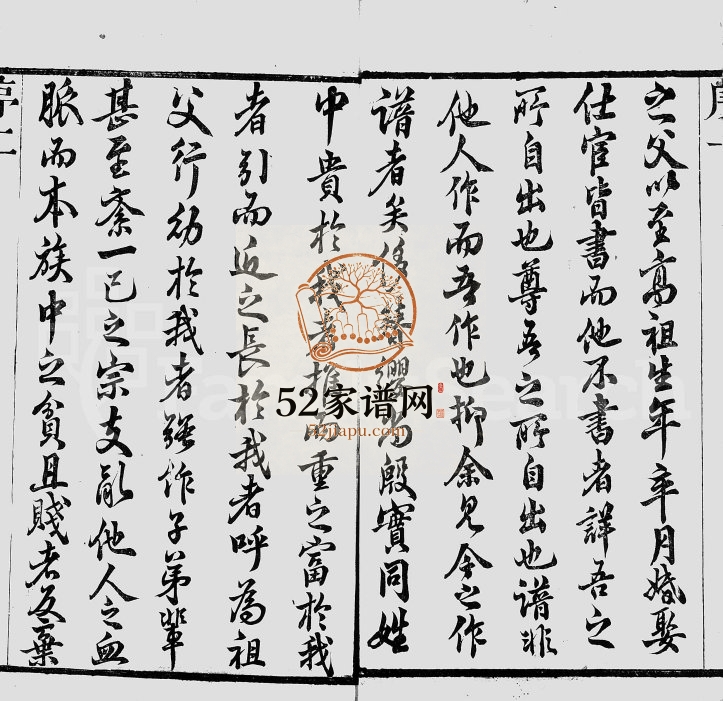 之父以至高祖生年卒月婚娶
仕宦皆書而他不書者詳吾之
所自出也尊吾之所自出也譜非
他人作而吾作也抑余見今之作
譜者矣簪纓為殷實同姓
中貴於我者推而重之富於我
者引而近之長於我者呼為祖
父行幼於我者強作子弟輩
甚至紊一己之宗支亂他人之血
脈而本族中之貧且賤者反棄
52家谱网
52jiapu.com